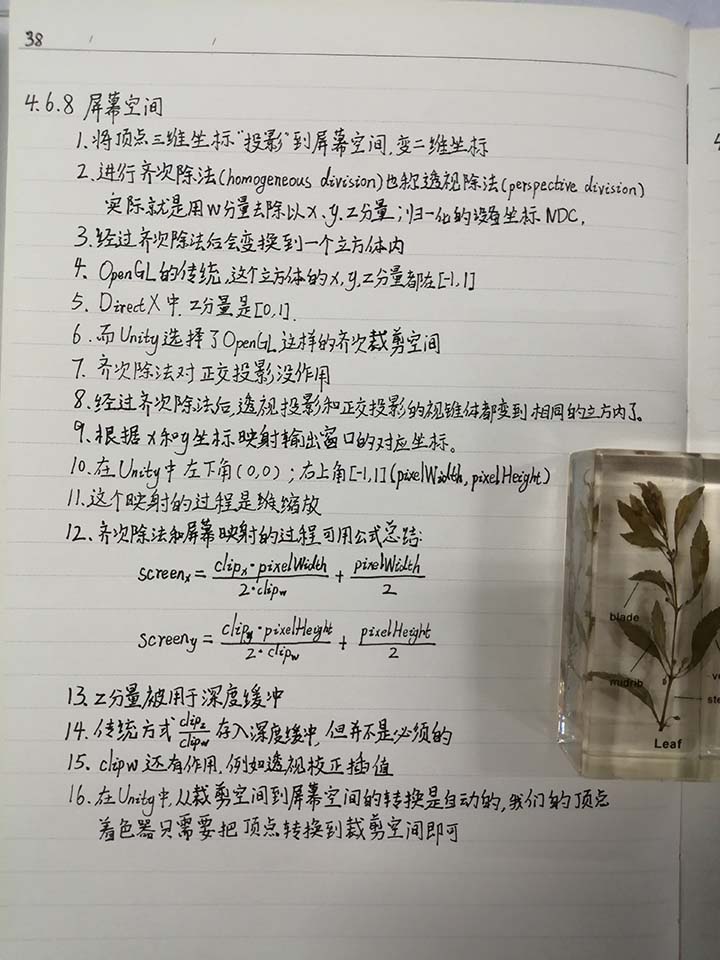 38
4.6.8 屏幕空间
1.将顶点三维坐标"投影"到屏幕空间,变二维坐标
2.进行齐次除法(homogeneous division)也称透视除法(perspective division)
实际就是用w分量去除以x、y、z分量;归一化的设备坐标NDC.
3.经过齐次除法后会变换到一个立方体内
4. OpenGL的传统,这个立方体的x,y,z分量都在[-1,1]
5. DirectX中,z分量是[0,1].
6.而Unity选择了OpenGL这样的齐次裁剪空间
7.齐次除法对正交投影没作用
8.经过齐次除法后,透视投影和正交投影的视锥体都变到相同的立方内了。
9.根据x和y坐标映射输出窗口的对应坐标。
10.在Unity中左下角(0,0);右上角[-1,1](pixelWidth,pixelHeight)
11.这个映射的过程是缩放
12、齐次除法和屏幕映射的过程可用公式总结:
screenx = clipx·pixelWidth / 2·clipw + pixelWidth / 2
screeny = clipy·pixelHeight / 2·clipw + pixelHeight / 2
13.z分量被用于深度缓冲
14.传统方式 clipz / clipw 存入深度缓冲,但并不是必须的
15. clipw还有作用,例如透视校正插值
16.在Unity中,从裁剪空间到屏幕空间的转换是自动的,我们的顶点
着色器只需要把顶点转换到裁剪空间即可
blade
midrib
Leaf